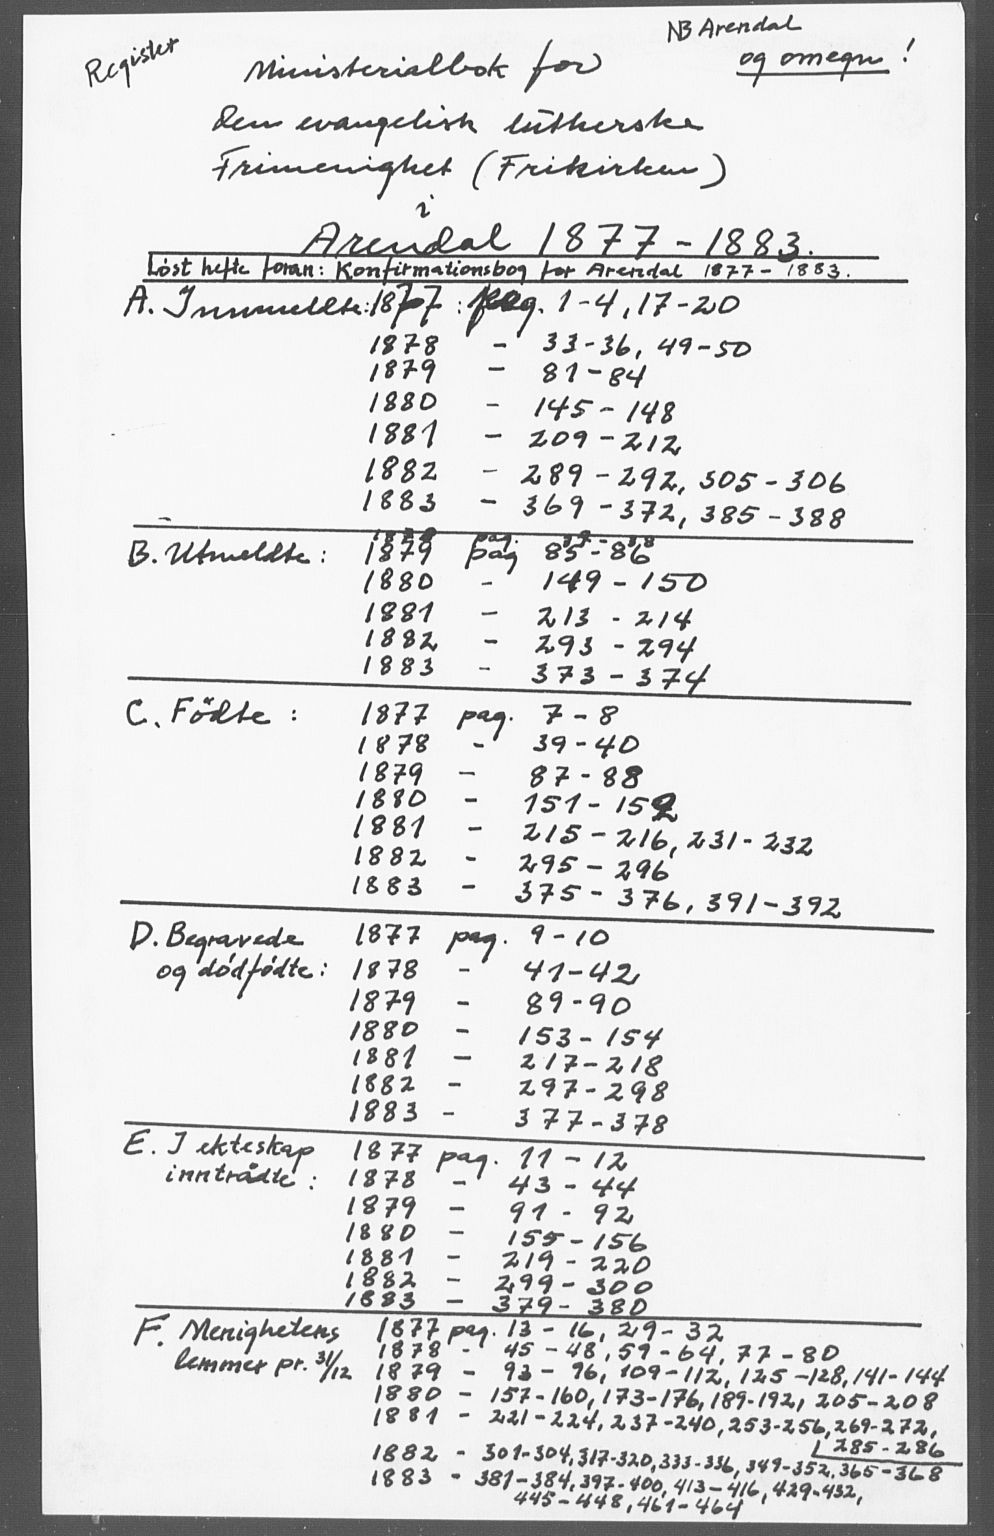 Register
NB Arendal
og omegn !
Ministerialbok for
den evangelisk lutherske
Frimenighet (Frikirken)
i
Arendal 1877 - 1883.
Løst hefte foran: Konfirmationsbog for Arendal 1877 - 1883.
A. Innmeldte: 1877 : pag. 1-4, 17-20
1878 - 33-36, 49-50
1879 - 81-84
1880 - 145-148
1881 - 209-212
1882 - 289-292, 305-306
1883 - 369-372, 385-388
1878 pag. 37-38
B. Utmeldte: 1879 pag 85-86
1880 - 149-150
1881 - 213-214
1882 - 293-294
1883 - 373-374
C. Födte : 1877 pag. 7-8
1878 - 39-40
1879 - 87-88
1880 - 151-152
1881 - 215-216, 231-232
1882 - 295-296
1883 - 375-376, 391-392
D. Begravede 1877 pag. 9-10
og dødfødte: 1878 - 41-42
1879 - 89-90
1880 - 153-154
1881 - 217-218
1882 - 297-298
1883 - 377-378
E. I ekteskap 1877 pag. 11-12
inntrådte : 1878 - 43-44
1879 - 91-92
1880 - 155-156
1881 - 219-220
1882 - 299-300
1883 - 379-380
F. Menighetens 1877 pag. 13-16, 29-32
lemmer pr. 31/12 1878 - 45-48, 59-64, 77-80
1879 - 93-96, 109-112, 125-128, 141-144
1880 - 157-160, 173-176, 189-192, 205-208
1881 - 221-224, 237-240, 253-256, 269-272,
285-286
1882 - 301-304, 317-320, 333-336, 349-352, 365-368
1883 - 381-384, 397-400, 413-416, 429-432,
445-448, 461-464